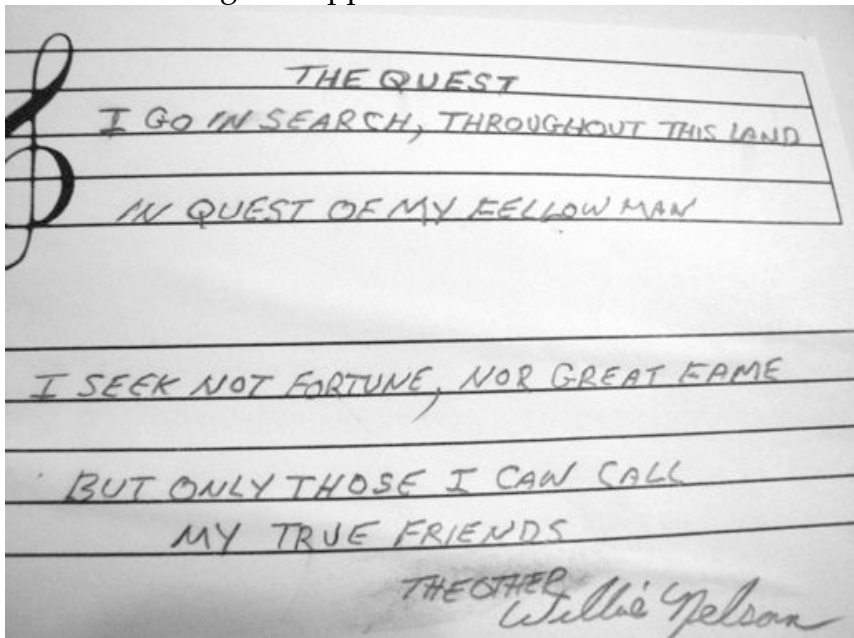 THE QUEST
I GO IN SEARCH, THROUGHOUT THIS LAND
IN QUEST OF MY FELLOW MAN
I SEEK NOT FORTUNE, NOR GREAT FAME
BUT ONLY THOSE I CAN CALL
MY TRUE FRIENDS
THE OTHER
Willie Nelson